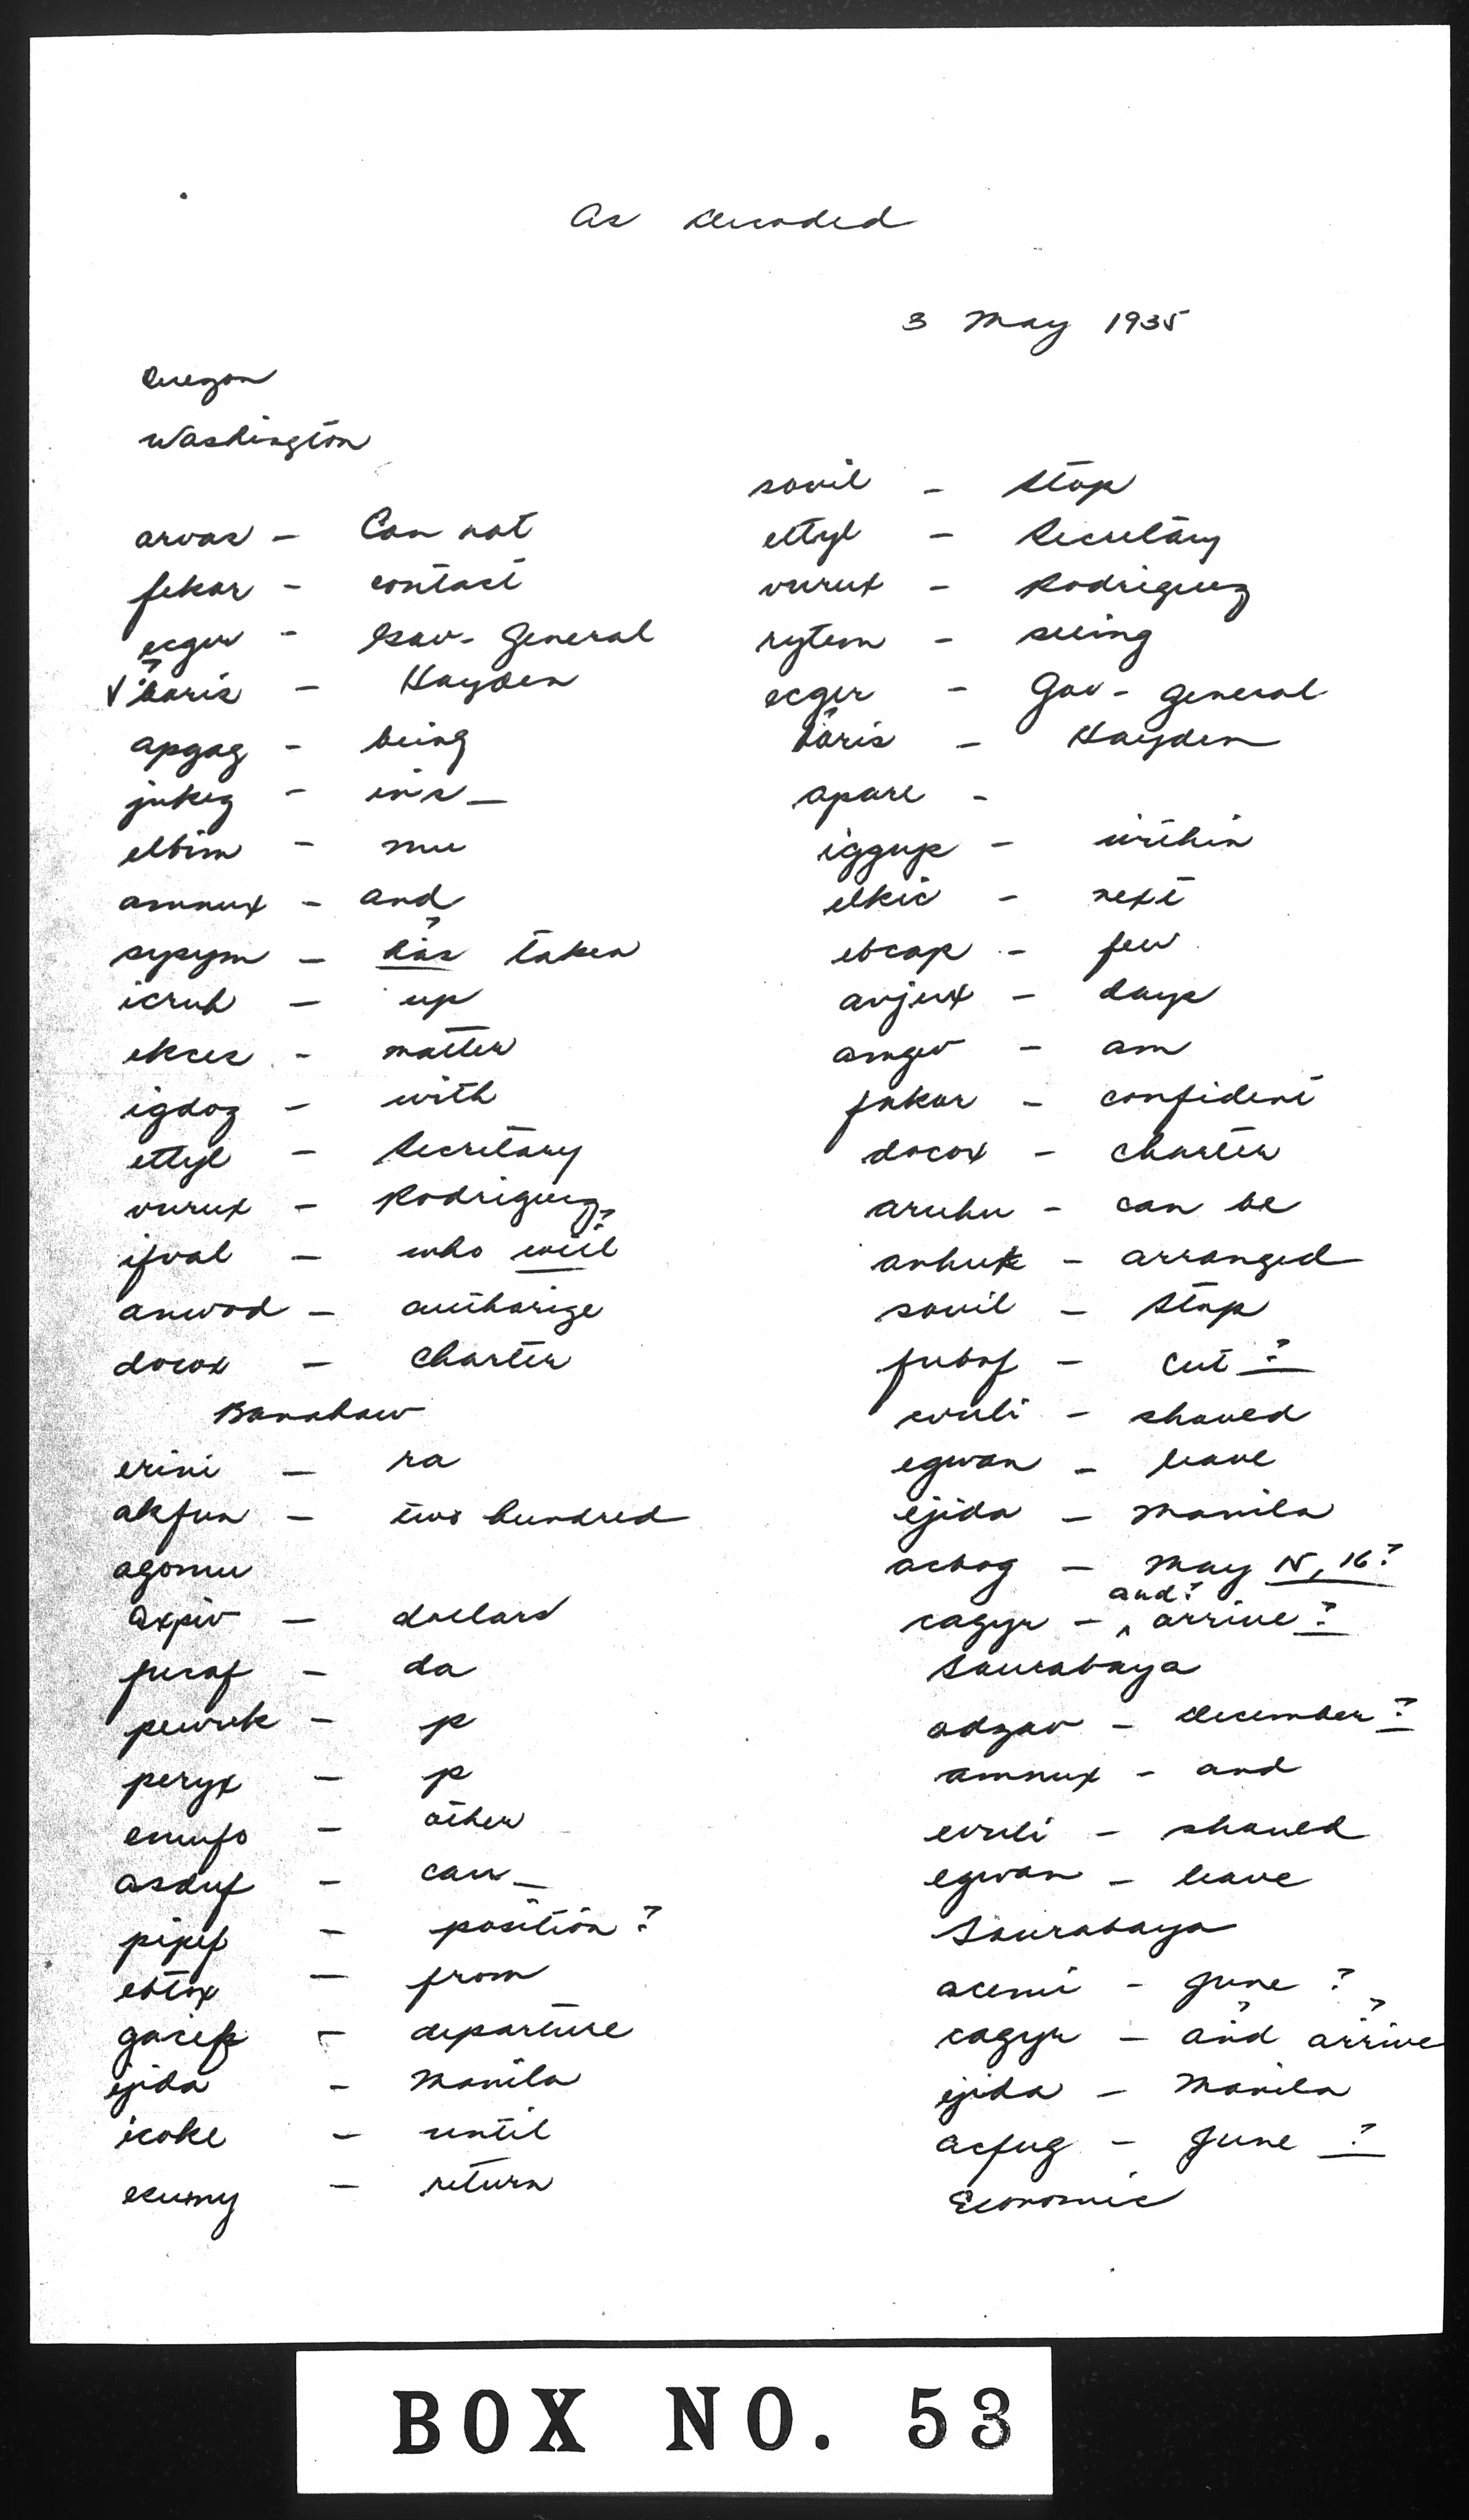 As decoded
3 May 1935
Oregon
Washington
arvas - Can not
fekar - contact
ecger - Gov-General
boris - Hayden
apgag - being
jukeg - ins_
elbim - mu
amnux - and
sysym - has? taken
icruh - up
ekces - matter
igdoz - with
ettyl - Secretary
vurux - Rodriguez
ifval - who will?
anwod - authorize
docox - charter
Banahaw
erini - ra
akfun - two hundred
agomu
axpiv - dollars
fusaf - da
pewrek - p
peryx - p
emufo - other
asduf - can_
pipef - position?
ebtox - from
gacek - departure
ejida - Manila
icoke - until
ecumy - return
sovil - Stop
ettyl - Secretary
vurux - Rodriguez
rytem - seeing
ecger - Gov-General
boris - Hayden
apare -
iggup - within
elkic - next
ebcap - few
avjux - days
amgev - am
fukar - confident
docox - charter
aruhu - can be
anhuk - arranged
sovil - Stop
fubof - cut?
evuli - should
egwan - leave
ejida - Manila
acbog - May 15, 16?
cagyr - and? arrive?
Sourabaya
adzav - December?
amnux - and
evuli - should
egwan - leave
Sourabaya
acemi - June ?
cagyr - and? arrive?
ejida - Manila
acfug - June ?
Economic
BOX NO. 53